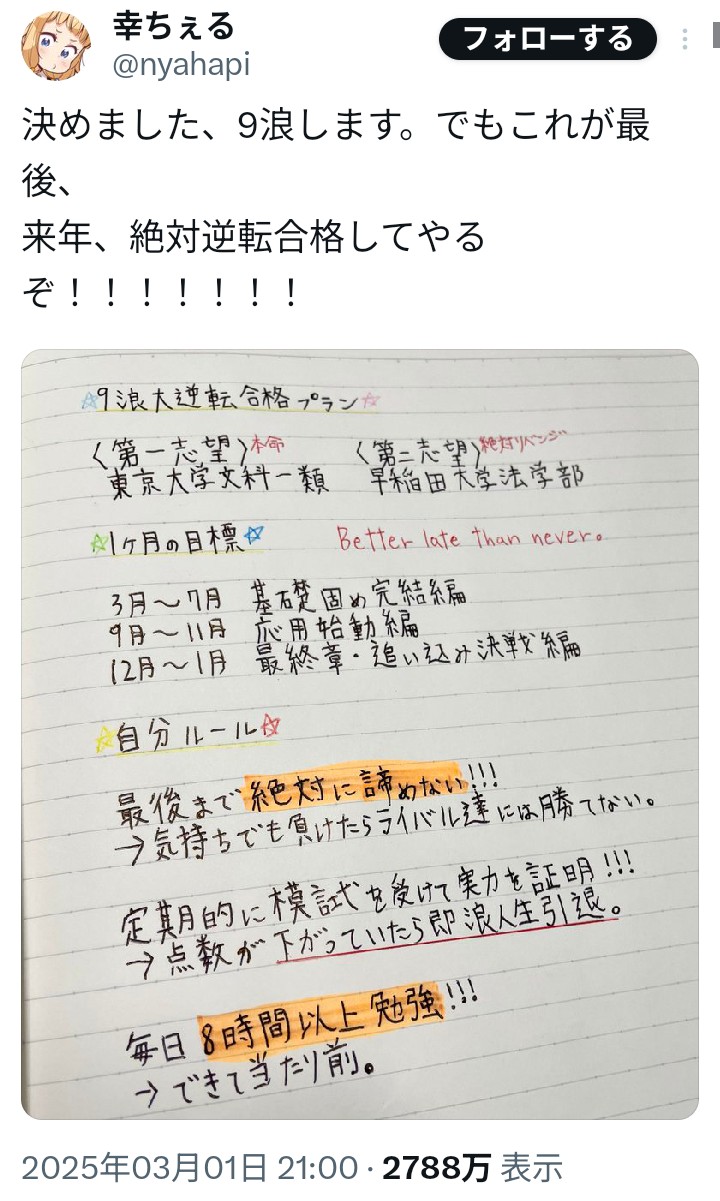 幸ちぇる
@nyahapi
フォローする
決めました、9浪します。でもこれが最
後、
来年、絶対逆転合格してやる
ぞ！！！！！！！
☆9浪大逆転合格プラン☆
〈第一志望〉本命
〈第二志望〉絶対リベンジ
東京大学文科一類
早稲田大学法学部
☆1ヶ月の目標☆
Better late than never。
3月〜7月 基礎固め完結編
9月〜11月 応用始動編
12月〜1月 最終章・追い込み決戦編
☆自分ルール☆
最後まで絶対に諦めない!!!
→気持ちでも負けたらライバル達には勝てない。
定期的に模試を受けて実力を証明!!!
→点数が下がっていたら即浪人生引退。
毎日8時間以上勉強!!!
→できて当たり前。
2025年03月01日 21:00 · 2788万 表示